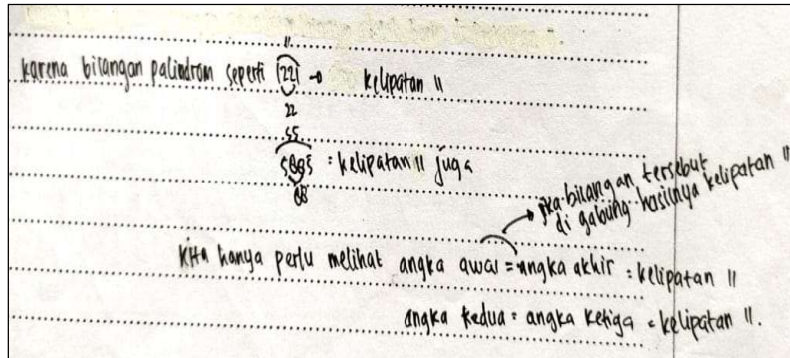 11
karena bilangan palindrom seperti 1221 → kelipatan 11
22
55
5885 : kelipatan 11 juga
88
jika bilangan tersebut
di gabung hasilnya kelipatan 11
kita hanya perlu melihat angka awal = angka akhir = kelipatan 11
angka kedua = angka ketiga = kelipatan 11.